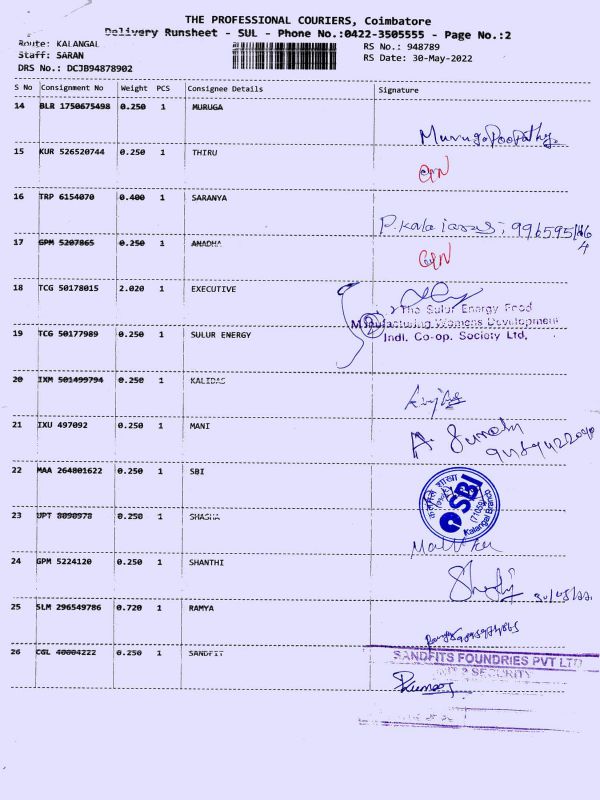 THE PROFESSIONAL COURIERS, Coimbatore
Delivery Runsheet - SUL - Phone No.:0422-3505555 - Page No.:2
Route: KALANGAL
RS No.: 948789
Staff: SARAN
RS Date: 30-May-2022
DRS No.: DCJB94878902
S No Consignment No Weight PCS Consignee Details Signature
14 BLR 1750675498 0.250 1 MURUGA
Murugapoopathy
15 KUR 526520744 0.250 1 THIRU
16 TRP 6154070 0.400 1 SARANYA
17 GPM 5207865 0.250 1 ANADHA
18 TCG 50178015 2.020 1 EXECUTIVE
The Sulur Energy Food
Manufacturing Womens Development
Indl. Co-op. Society Ltd.
19 TCG 50177989 0.250 1 SULUR ENERGY
20 IXM 501499794 0.250 1 KALIDAS
21 IXU 497092 0.250 1 MANI
22 MAA 264801622 0.250 1 SBI
SBI
Kalangal Branch
23 UPT 8090978 0.250 1 SHASHA
24 GPM 5224120 0.250 1 SHANTHI
25 SLM 296549786 0.720 1 RAMYA
26 CGL 40004222 0.250 1 SANDFIT
SANDFITS FOUNDRIES PVT LTD
SECURITY